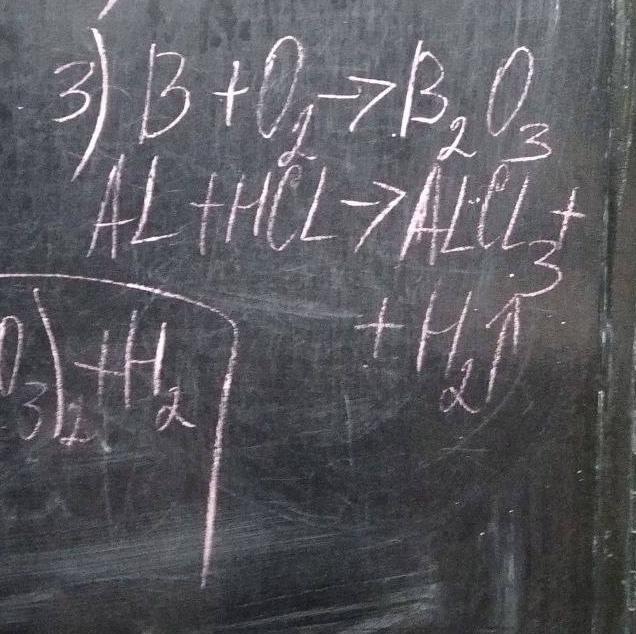 3) B + O₂ → B₂O₃
AL + HCL → ALCL₃ +
+ H₂↑
O₃)₂ + H₂